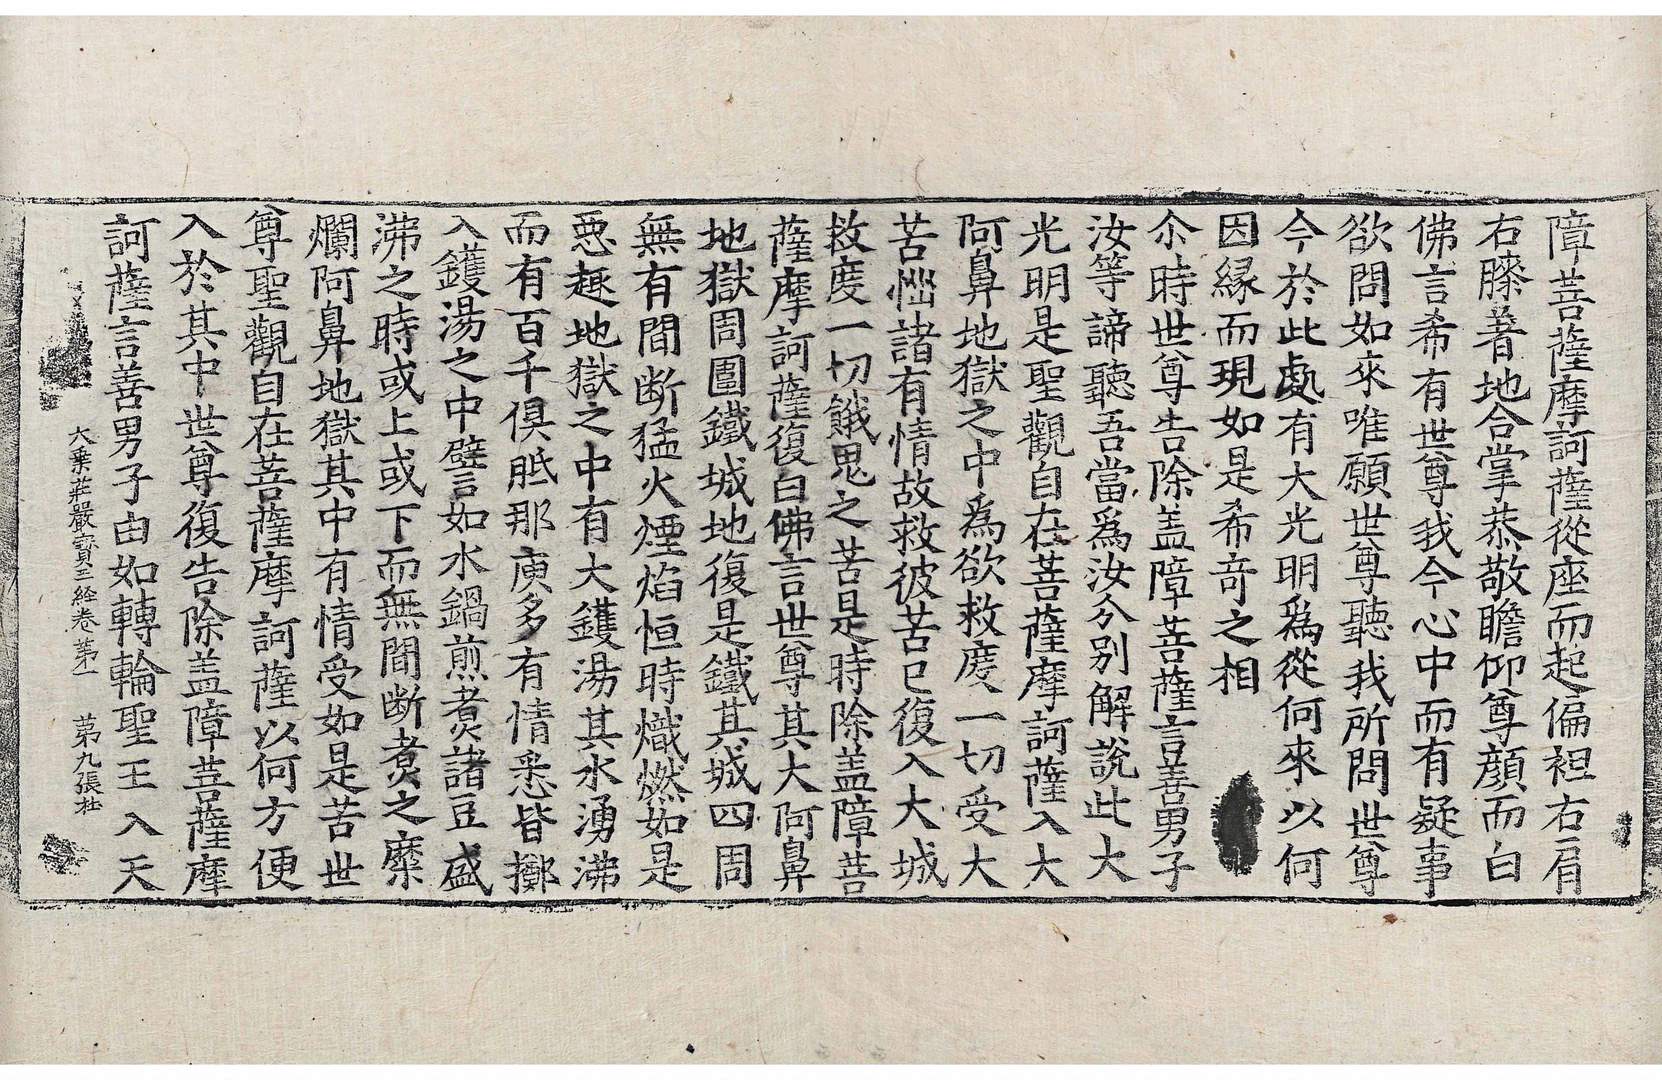 障菩薩摩訶薩從座而起偏袒右肩
右膝着地合掌恭敬瞻仰尊顔而白
佛言希有世尊我今心中而有疑事
欲問如來唯願世尊聽我所問世尊
今於此處有大光明爲從何來以何
因縁而現如是希奇之相
尒時世尊告除盖障菩薩言善男子
汝等諦聽吾當爲汝分別解說此大
光明是聖觀自在菩薩摩訶薩入大
阿鼻地獄之中爲欲救度一切受大
苦惱諸有情故救彼苦已復入大城
救度一切餓鬼之苦是時除盖障菩
薩摩訶薩復白佛言世尊其大阿鼻
地獄周圍鐵城城地復是鐵其城四周
無有間断猛火煙焰恒時熾燃如是
惡趣地獄之中有大鑊湯其水湧沸
而有百千俱胝那庾多有情悉皆擲
入鑊湯之中譬如水鍋煎煑諸豆盛
沸之時或上或下而無間断煑之糜
爛阿鼻地獄其中有情受如是苦世
尊聖觀自在菩薩摩訶薩以何方便
入於其中世尊復告除盖障菩薩摩
訶薩言善男子由如轉輪聖王入天
大乗莊嚴寳王経卷第一 第九張杜